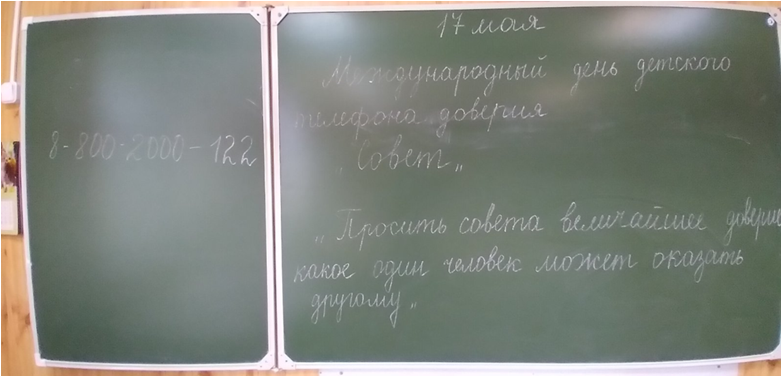 8-800-2000-122
17 мая
Международный день детского
телефона доверия
„Совет„
„Просить совета величайшее довери
какое один человек может оказать
другому„